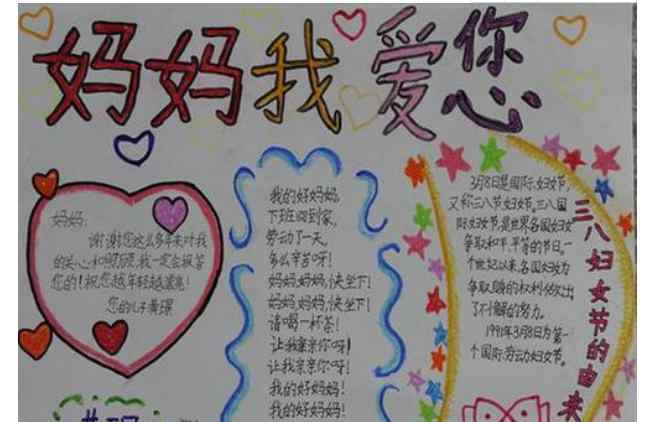 妈妈我爱您
妈妈:
谢谢您这么多年来对我
的关心和照顾,我一定会报答
您的!祝您越年轻越漂亮!
您的儿子黄
我的好妈妈,
下班回到家,
劳动了一天,
多么辛苦呀!
妈妈,妈妈,快坐下!
妈妈,妈妈,快坐下!
请喝一杯茶!
让我亲亲你呀!
让我亲亲你呀!
我的好妈妈!
我的好妈妈!
3月8日是国际妇女节,
又称三八节妇女节,三八国
际妇女节,是世界各国妇女
争取和平、平等的节日。一
个世纪以来,各国妇女为
争取她的权利依次出
了不懈的努力。
1991年3月8日为第一
个国际劳动妇女节。
三八妇女节的由来